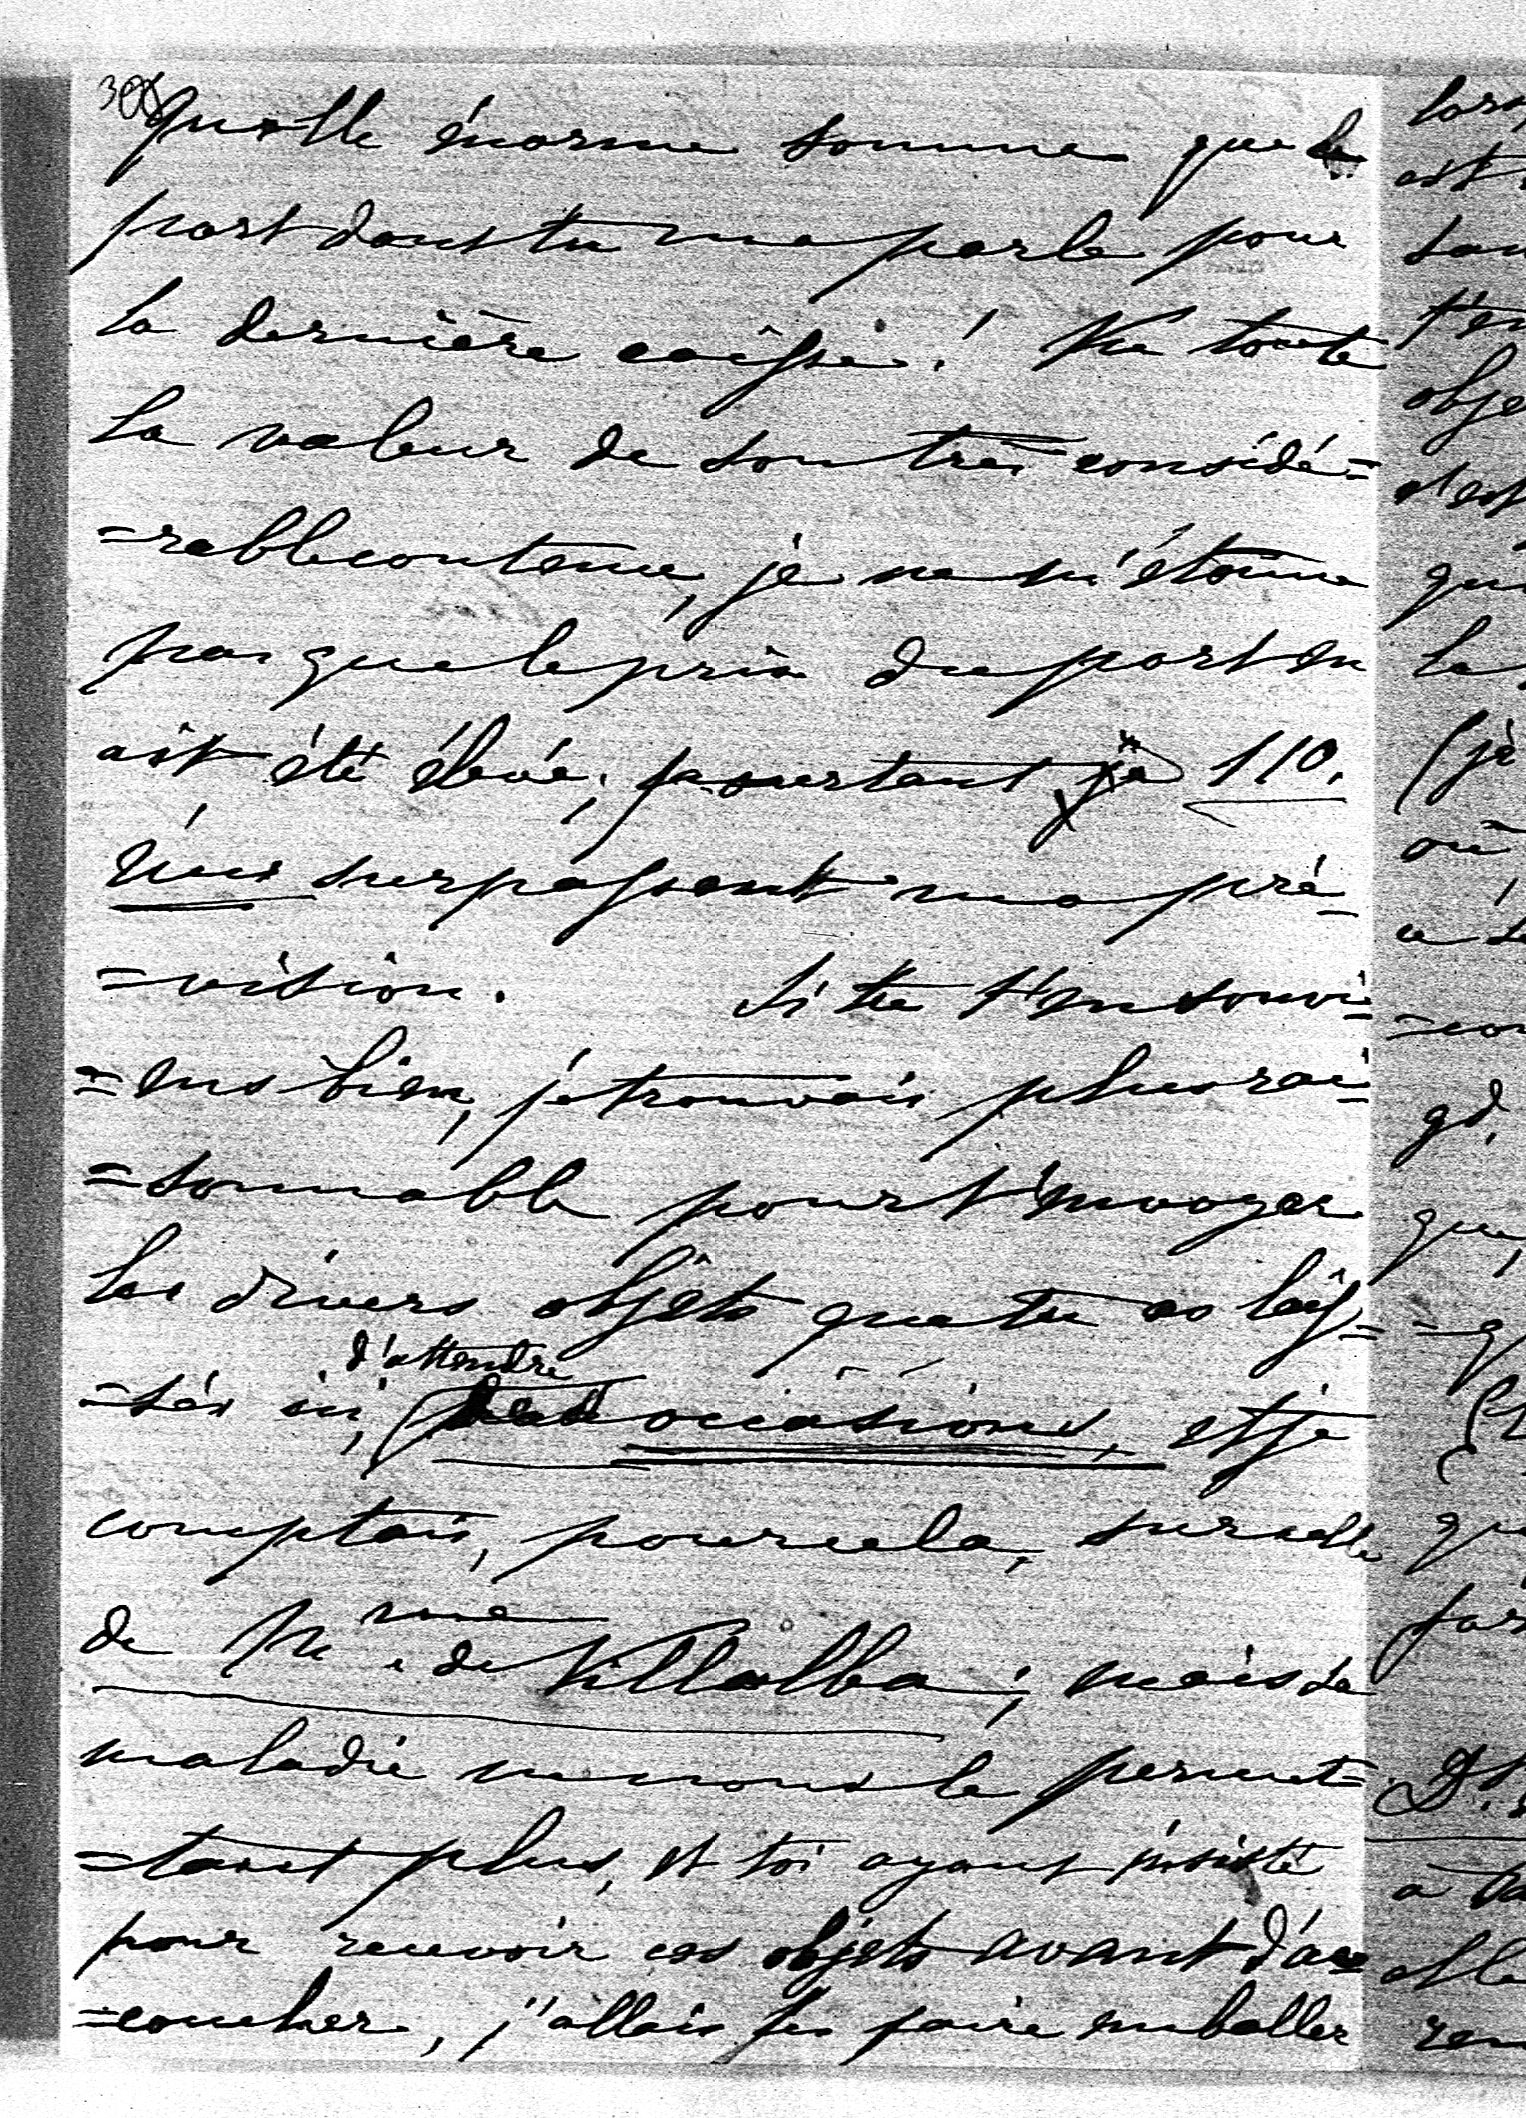 398
Quelle énorme somme que le
port dont tu me parle pour
la dernière caîsse! Vu toute
la valeur de son très considé=
=rable contenu, je ne m'étonne
pas que le prix du port en
ait été élevé; pourtant 110.
surpassent ma pré=
=vision. Si tu t'en souvi=
=ens bien, je trouvais plus rai=
=sonnable pour t'envoyer
les divers objêts que tu as laîs=
d'attendre
=sés ici, des occâsions, et je
comptais, pour cela, sur celle
de Mme de Villalba; mais sa
maladie ne nous le permet=
=tant plus, et toi ayant insisté
pour recevoir ces objets avant d'ac=
=coucher, j'allais les faire emballer